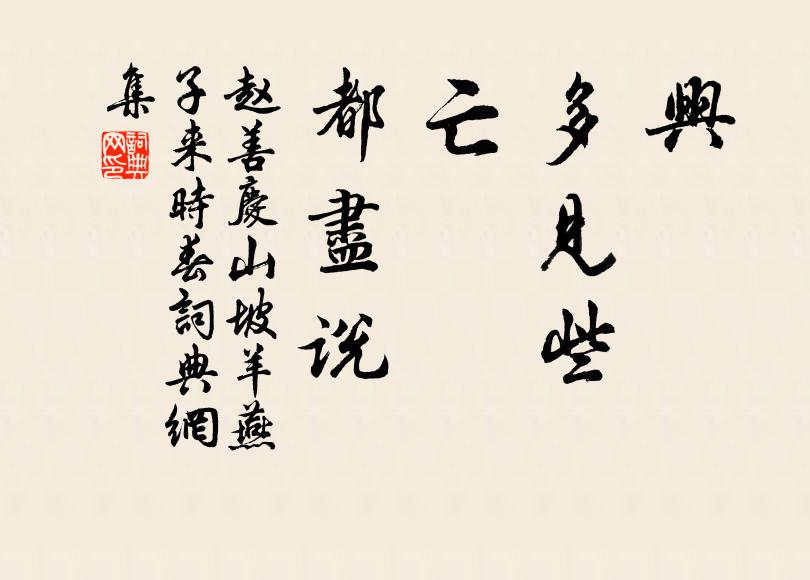 興
多見些
亡
都盡説
赵善慶山坡羊燕
子来時春詞典網
集
詞典
网印